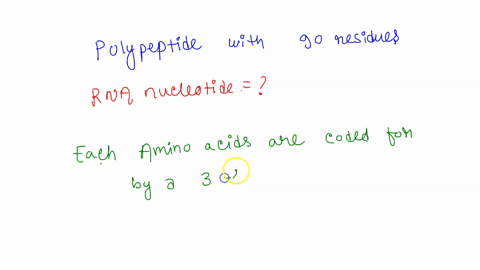 Polypeptide with 90 residues
RNA nucleotide = ?
Each Amino acids are coded for
by a 3